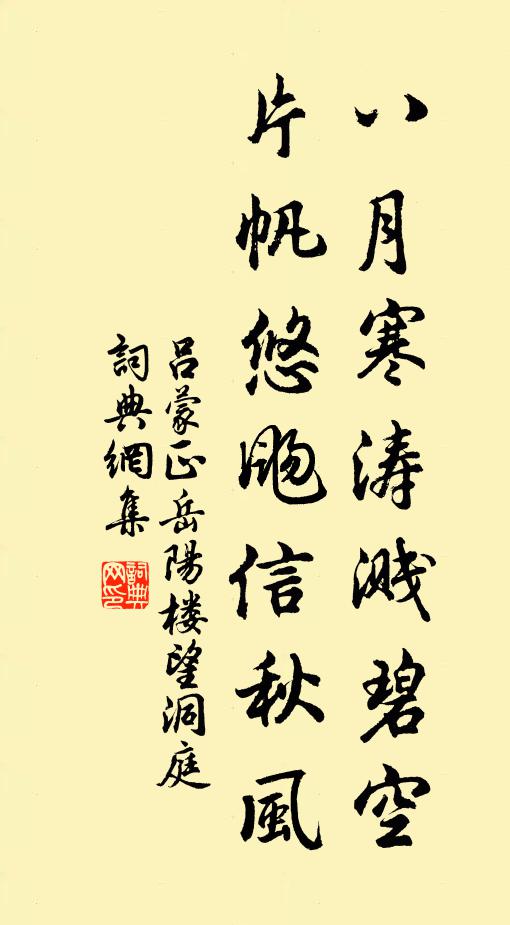 八月寒涛溅碧空
片帆悠飏信秋風
吕蒙正岳陽楼望洞庭
詞典網集
詞典
网印